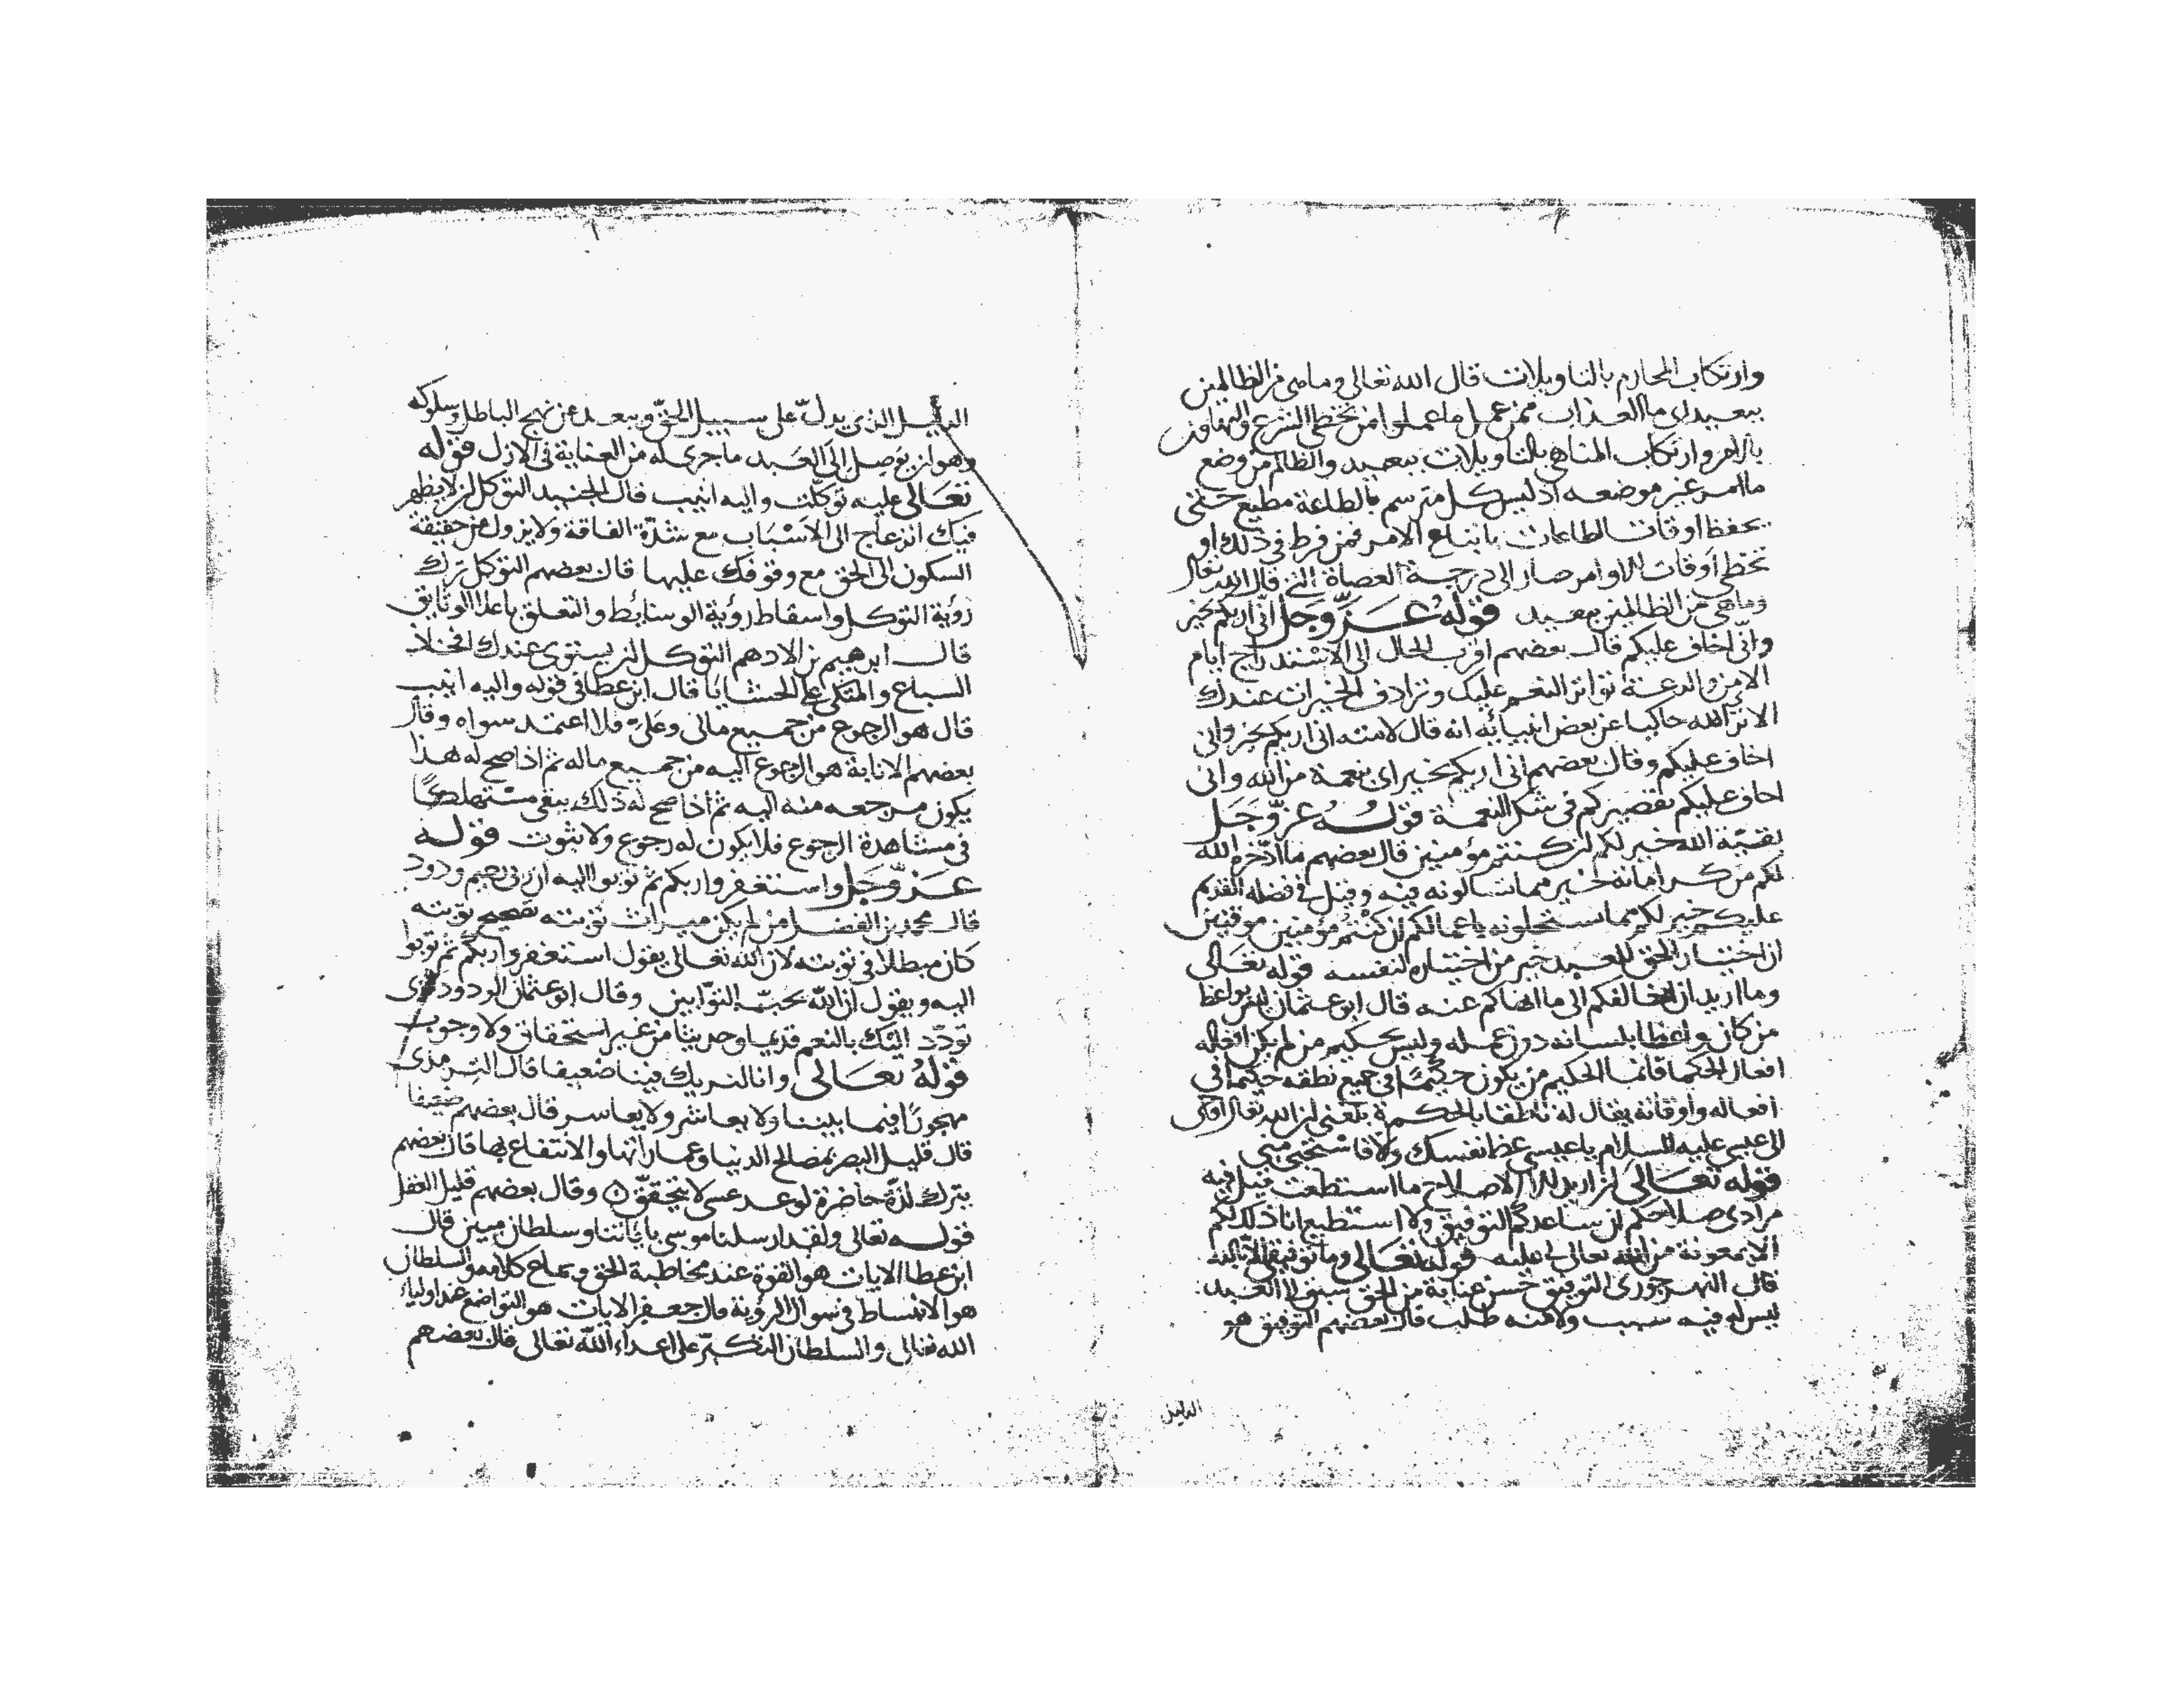 وارتكاب المحارم بالتاويلات قال الله تعالى وما هى من الظالمين
ببعيد اى ما العذاب ممن عمل ما عملوا من تخطى الشرع والتهاون
بالامر وارتكاب المناهى بالتاويلات ببعيد والظالم من وضع
ما امر غير موضعه اذ ليس كل مترسم بالطاعة مطيع حتى
يحفظ اوقات الطاعات باتباع الامر فمن فرط فى ذلك او
تخطى اوقات الاوامر صار الى درجة العصاة التى قال الله تعالى
وما هى من الظالمين ببعيد قوله عز وجل انى اريكم بخير
وانى اخاف عليكم قال بعضهم اقرب الحال الى الاستدراج ايام
الامن والدعة تواتر النعم عليك وترادف الخيرات عندك
الا تر الله حاكيا عن بعض انبيائه انه قال لامته انى اريكم بخير وانى
اخاف عليكم وقال بعضهم انى اريكم بخير اى بنعمة من الله وانى
اخاف عليكم تقصيركم فى شكر النعمة قوله عز وجل
بقية الله خير لكم ان كنتم مؤمنين قال بعضهم ما ادخره الله
لكم من كراماته خير مما تسالونه فيه وقيل فى فضله القديم
عليكم خير لكم مما ستحلونه باعمالكم ان كنتم مؤمنين موقنين
ان اختيار الحق للعبد خير من اختياره لنفسه قوله تعالى
وما اريد ان اخالفكم الى ما انهاكم عنه قال ابو عثمان ليس بواعظ
من كان واعظا بلسانه دون عمله وليس بحكيم من لم يكن افعاله
افعال الحكما فانما الحكيم من يكون حكيما فى جميع نطقه حكيما فى
افعاله واوقاته يقال له ناطقا بالحكمة بلغنى ان الله تعالى اوحى
الى عيسى عليه السلام يا عيسى عظ نفسك والا فاستحيى منى
قوله تعالى ان اريد الا الاصلاح ما استطعت قيل فيه
مرادى صلاحكم ان ساعدكم التوفيق ولا استطيع انا ذلك لكم
الا بمعونة من الله تعالى لى عليه قوله تعالى وما توفيقى الا بالله
قال النهرجورى التوفيق حسن عناية من الحق سبق الى العبد
ليس له فيه سبب ولا منه طلب قال بعضهم التوفيق هو
الدليل
الدليل الذى يدل على سبيل الحق ويبعد عن نهج الباطل وسلوكه
وهو ان يوصل الى العبد ما جرى له من العناية فى الازل قوله
تعالى عليه توكلت واليه انيب قال الجنيد التوكل ان لا يظهر
فيك انزعاج الى الاسباب مع شدة الفاقة ولا يزول عن حقيقة
السكون الى الحق مع وقوفك عليها قال بعضهم التوكل ترك
رؤية التوكل واسقاط رؤية الوسائط والتعلق باعلا الوثايق
قال ابرهيم بن الادهم التوكل ان يستوى عندك افخاذ
السباع والمتكى على الحشايا قال ابن عطا فى قوله واليه انيب
قال هو الرجوع من جميع مالى وعلى فلا اعتمد سواه وقال
بعضهم الانابة هو الرجوع اليه من جميع ماله ثم اذا صح له هذا
يكون مرجعه منه اليه ثم اذا صح له ذلك يبقى مستهلكا
فى مشاهدة الرجوع فلا يكون له رجوع ولا ثبوت قوله
عز وجل واستغفروا ربكم ثم توبوا اليه ان ربى رحيم ودود
قال محمد بن الفضل من لم يكن ميراث توبته تصحيح توبته
كان مبطلا فى توبته لان الله تعالى يقول استغفروا ربكم ثم توبوا
اليه ويقول ان الله يحب التوابين وقال ابو عثمان الودود الذى
تودد اليك بالنعم قديما وحديثا من غير استحقاق ولا وجوب
قوله تعالى وانا لنريك فينا ضعيفا قال الترمذى
مهجورا فيما بيننا ولا يعاشر ولا يعاسر قال بعضهم ضعيفا
قال قليل البصر بمصالح الدنيا وعماراتها والانتفاع بها قال بعضهم
بترك لذة حاضرة لوعد عسى لا يتحقق وقال بعضهم قليل العقل
قوله تعالى ولقد ارسلنا موسى باياتنا وسلطان مبين قال
ابن عطا الايات هو القوة عند مخاطبة الحق وسماع كلامه والسلطان
هو الانبساط فى سوال الرؤية قال جعفر الايات هو التواضع عند اولياء
الله تعالى والسلطان التكبر على اعداء الله تعالى قال بعضهم